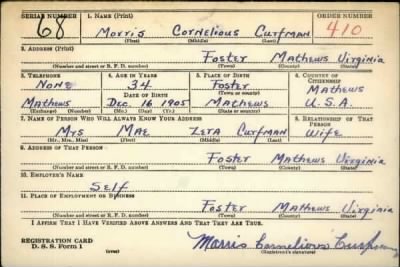 SERIAL NUMBER 1. NAME (Print) ORDER NUMBER
68 Morris Cornelious Curfman 410
(First) (Middle) (Last)
2. ADDRESS (Print)
Foster Mathews Virginia
(Number and street or R. F. D. number) (Town) (County) (State)
3. TELEPHONE 4. AGE IN YEARS 5. PLACE OF BIRTH 6. COUNTRY OF CITIZENSHIP
None 34 Foster Mathews
DATE OF BIRTH (Town)
Mathews Dec 16 1905 Mathews U.S.A.
(Exchange) (Number) (Mo.) (Day) (Yr.) (State or country)
7. NAME OF PERSON WHO WILL ALWAYS KNOW YOUR ADDRESS 8. RELATIONSHIP OF THAT PERSON
Mrs Mae Zera Curfman Wife
(Mr., Mrs., Miss) (First) (Middle) (Last)
9. ADDRESS OF THAT PERSON
Foster Mathews Virginia
(Number and street or R. F. D. number) (Town) (County) (State)
10. EMPLOYER'S NAME
Self
11. PLACE OF EMPLOYMENT OR BUSINESS
Foster Mathews Virginia
(Number and street or R. F. D. number) (Town) (County) (State)
I AFFIRM THAT I HAVE VERIFIED ABOVE ANSWERS AND THAT THEY ARE TRUE.
REGISTRATION CARD
D. S. S. Form 1 Morris Cornelious
(over) (Registrant's signature)